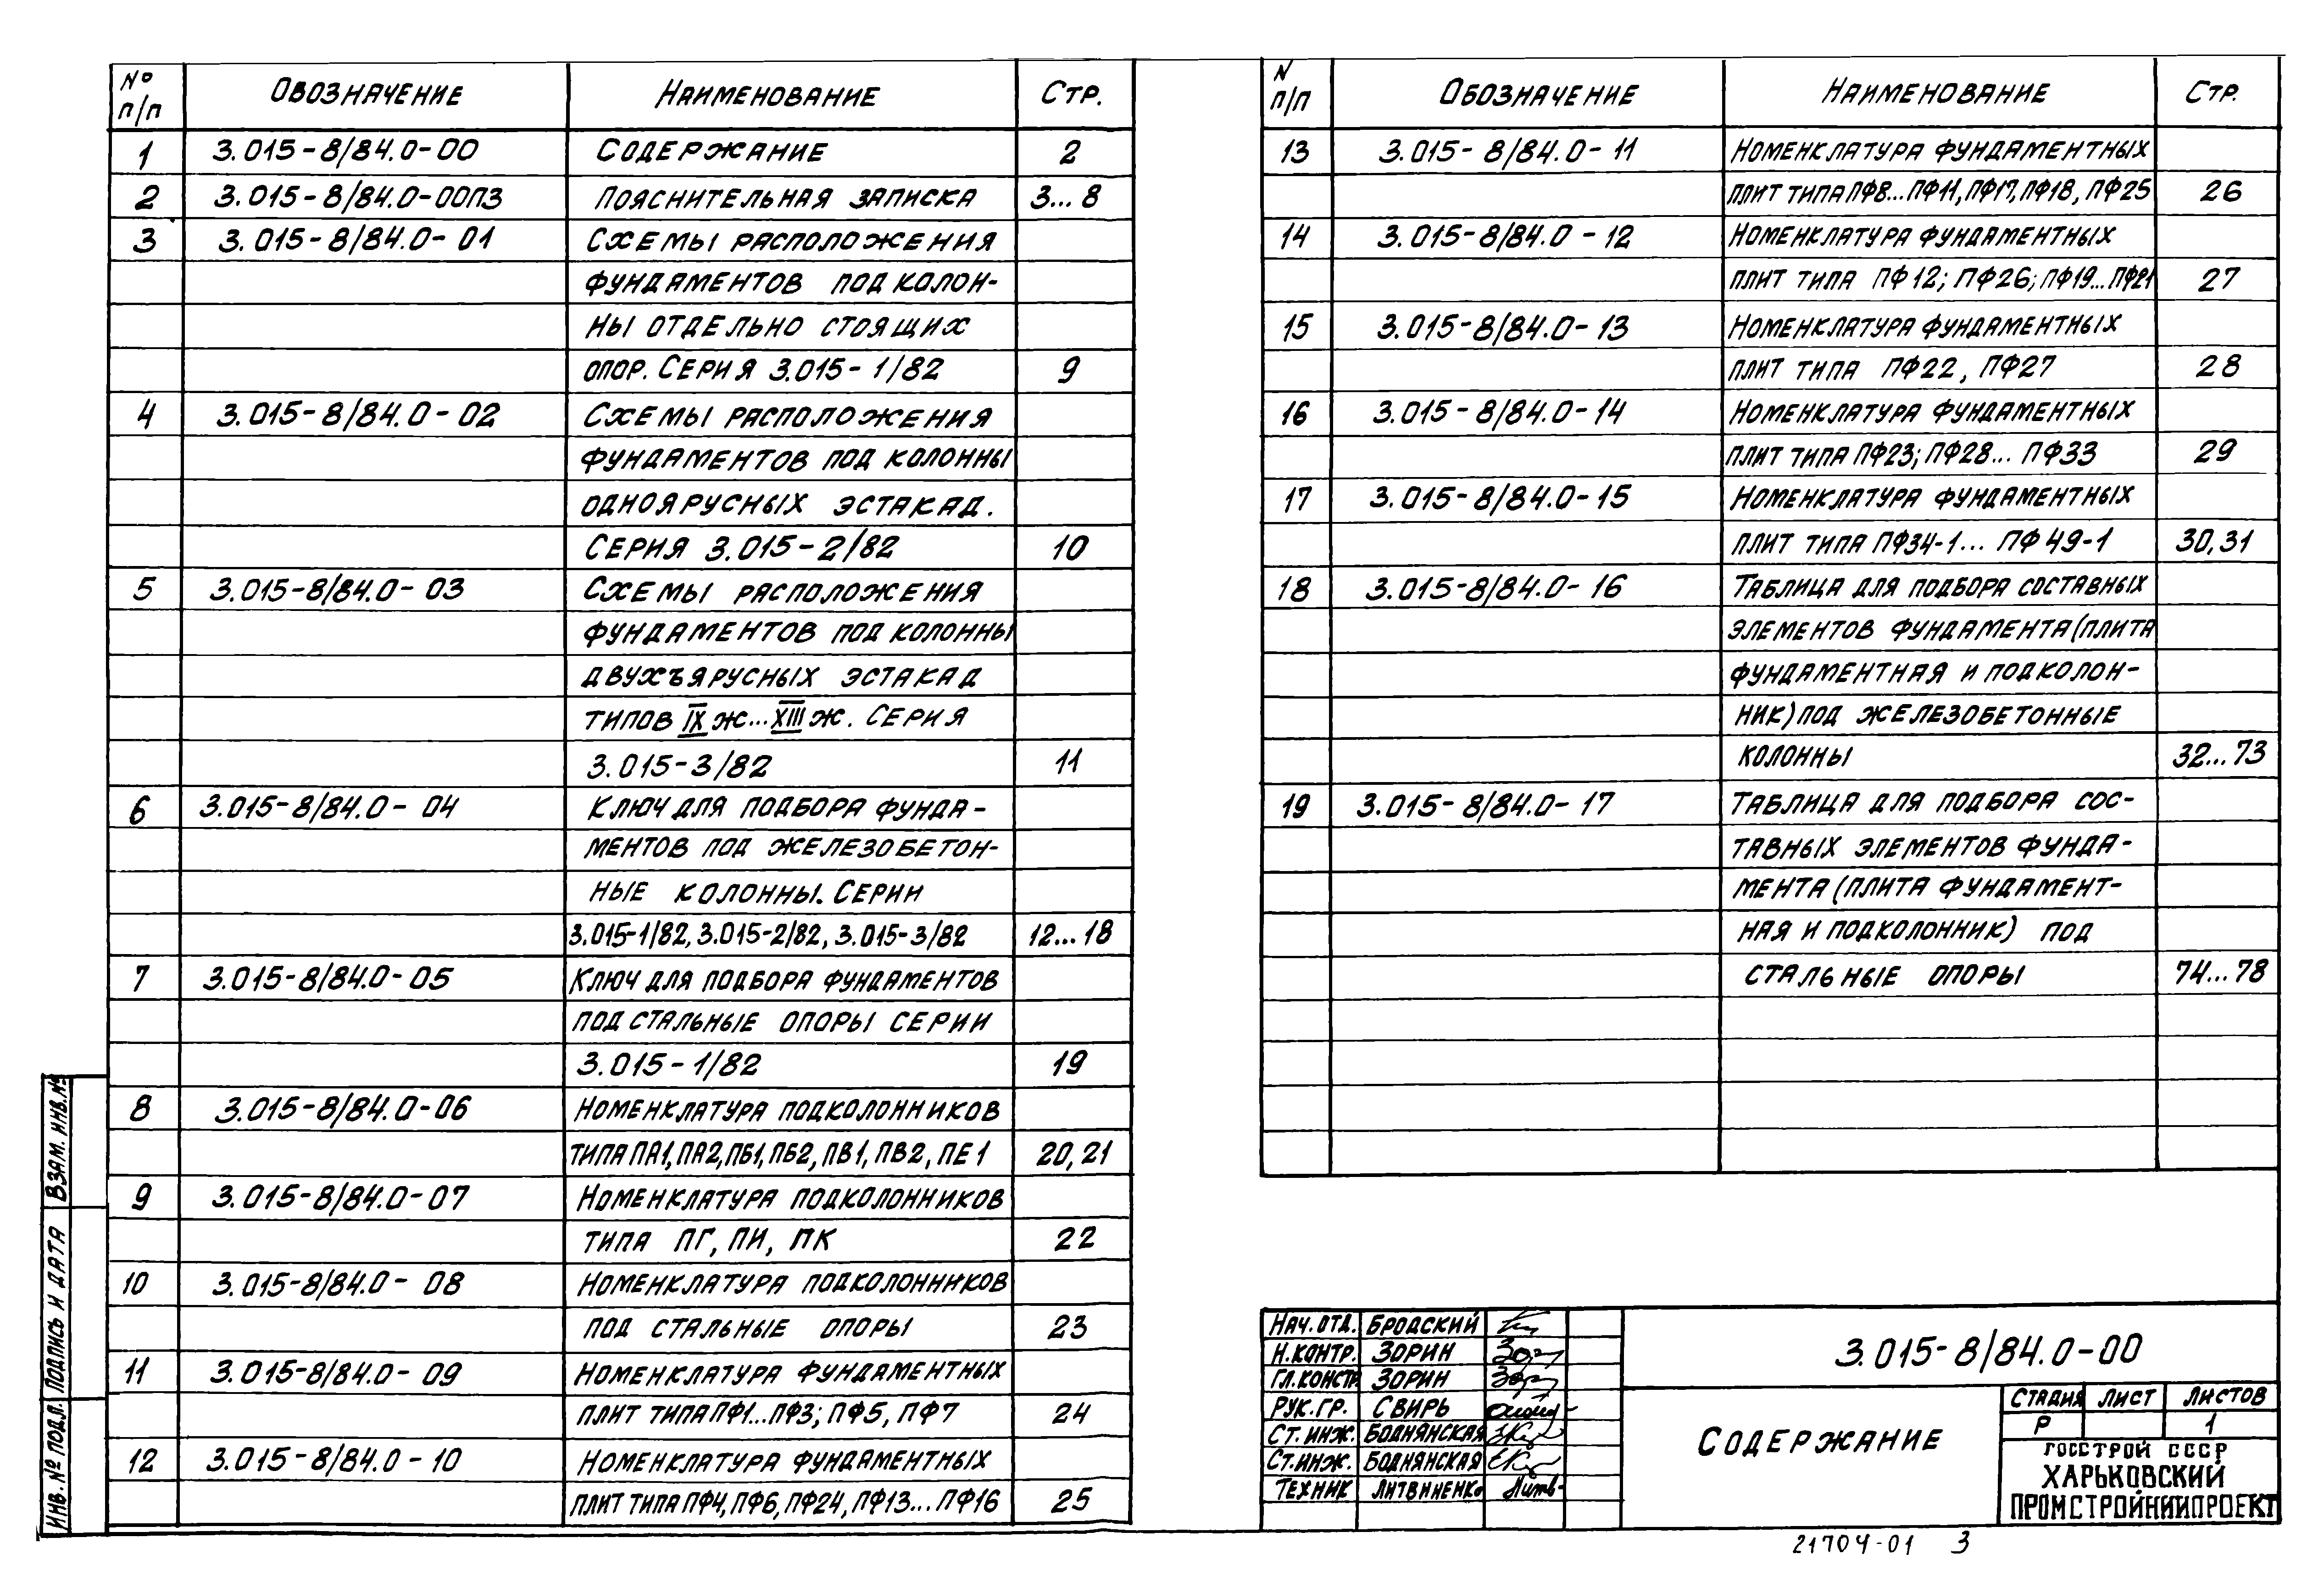 № п/п Обозначение Наименование Стр.
1 3.015-8/84.0-00 Содержание 2
2 3.015-8/84.0-00ПЗ Пояснительная записка 3...8
3 3.015-8/84.0-01 Схемы расположения
фундаментов под колон-
ны отдельно стоящих
опор. Серия 3.015-1/82 9
4 3.015-8/84.0-02 Схемы расположения
фундаментов под колонны
одноярусных эстакад.
Серия 3.015-2/82 10
5 3.015-8/84.0-03 Схемы расположения
фундаментов под колонны
двухъярусных эстакад
типов IX ж...XIII ж. Серия
3.015-3/82 11
6 3.015-8/84.0-04 Ключ для подбора фунда-
ментов под железобетон-
ные колонны. Серии
3.015-1/82, 3.015-2/82, 3.015-3/82 12...18
7 3.015-8/84.0-05 Ключ для подбора фундаментов
под стальные опоры серии
3.015-1/82 19
8 3.015-8/84.0-06 Номенклатура подколонников
типа ПА1, ПА2, ПБ1, ПБ2, ПВ1, ПВ2, ПЕ1 20, 21
9 3.015-8/84.0-07 Номенклатура подколонников
типа ПГ, ПИ, ПК 22
10 3.015-8/84.0-08 Номенклатура подколонников
под стальные опоры 23
11 3.015-8/84.0-09 Номенклатура фундаментных
плит типа ПФ1...ПФ3; ПФ5, ПФ7 24
12 3.015-8/84.0-10 Номенклатура фундаментных
плит типа ПФ4, ПФ6, ПФ24, ПФ13...ПФ16 25
N п/п Обозначение Наименование Стр.
13 3.015-8/84.0-11 Номенклатура фундаментных
плит типа ПФ8...ПФ11, ПФ17, ПФ18, ПФ25 26
14 3.015-8/84.0-12 Номенклатура фундаментных
плит типа ПФ12; ПФ26; ПФ19...ПФ21 27
15 3.015-8/84.0-13 Номенклатура фундаментных
плит типа ПФ22, ПФ27 28
16 3.015-8/84.0-14 Номенклатура фундаментных
плит типа ПФ23; ПФ28... ПФ33 29
17 3.015-8/84.0-15 Номенклатура фундаментных
плит типа ПФ34-1... ПФ49-1 30, 31
18 3.015-8/84.0-16 Таблица для подбора составных
элементов фундамента (плита
фундаментная и подколон-
ник) под железобетонные
колонны 32...73
19 3.015-8/84.0-17 Таблица для подбора сос-
тавных элементов фунда-
мента (плита фундамент-
ная и подколонник) под
стальные опоры 74...78
Инв. № подл. Подпись и дата Взам. инв. №
Нач. отд. Бродский
Н. контр. Зорин
Гл. констр Зорин
Рук. гр. Свирь
Ст. инж. Боднянская
Ст. инж. Боднянская
Техник Литвиненко
3.015-8/84.0-00
Содержание
Стадия Лист Листов
Р 1
Госстрой СССР
Харьковский
Промстройниипроект
21704-01 3